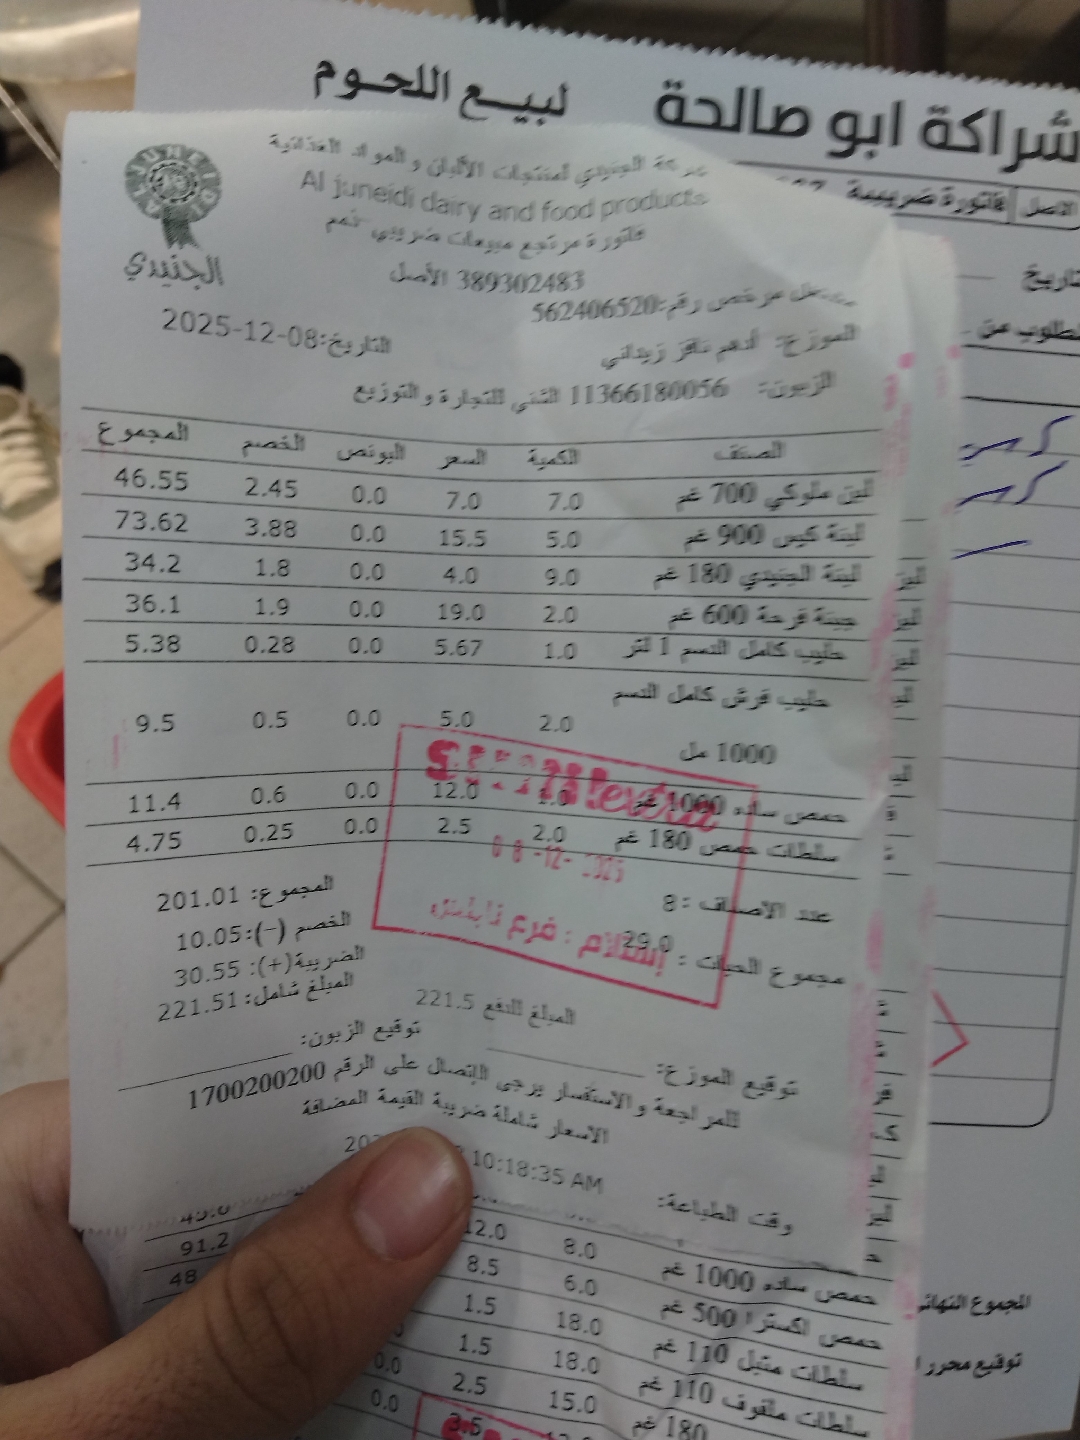 شراكة ابو صالحة لبيع اللحوم
الاصل فاتورة ضريبية
تاريخ
شركة الجنيدي لمنتجات الألبان و المواد الغذائية
Al juneidi dairy and food products
الجنيدي
فاتورة مرتجع مبيعات ضريبي
389302483 الأصل
مشتغل مرخص رقم:562406520
التاريخ:2025-12-08
الموزع: أدهم زيداني
الزبون: 11366180056 للتجارة و التوزيع
الصنف الكمية السعر البونص الخصم المجموع
لبن ملوكي 700 غم 7.0 7.0 0.0 2.45 46.55
لبنة كيس 900 غم 5.0 15.5 0.0 3.88 73.62
لبنة الجنيدي 180 غم 9.0 4.0 0.0 1.8 34.2
جبنة فرحة 600 غم 2.0 19.0 0.0 1.9 36.1
حليب كامل الدسم 1 لتر 1.0 5.67 0.0 0.28 5.38
حليب فرش كامل الدسم
1000 مل 2.0 5.0 0.0 0.5 9.5
حمص ساده 1000 غم 1.0 12.0 0.0 0.6 11.4
سلطات حمص 180 غم 2.0 2.5 0.0 0.25 4.75
08-12-2025
إستلام : فرع نابلس
عدد الاصناف :8
مجموع الحبات : 29.0
المجموع: 201.01
الخصم (-):10.05
الضريبة(+): 30.55
المبلغ شامل:221.51
المبلغ للدفع 221.5
توقيع الزبون:
توقيع الموزع:
للمراجعة و الاستفسار يرجى الإتصال على الرقم 1700200200
الاسعار شاملة ضريبة القيمة المضافة
وقت الطباعة: 10:18:35 AM
حمص ساده 1000 غم 8.0 12.0 91.2
حمص اكسترا 500 غم 6.0 8.5 48
سلطات متبل 110 غم 18.0 1.5
سلطات ملفوف 110 غم 18.0 1.5 0.0
180 غم 15.0 2.5 0.0
3.5
المجموع النهائي
توقيع محرر